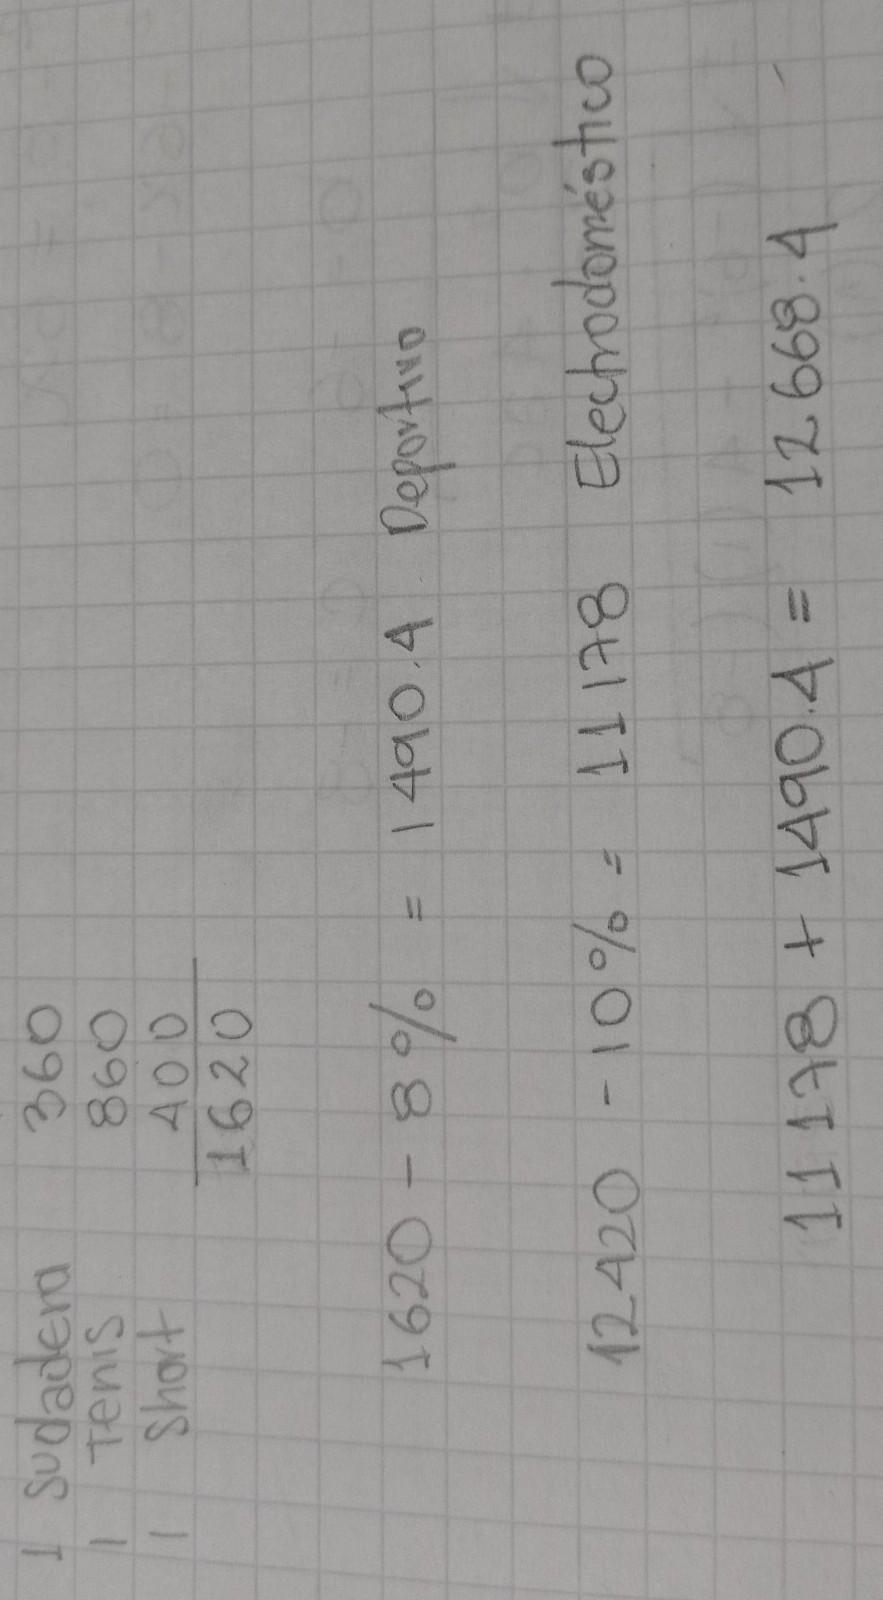 1 Sudadera 360
1 Tenis 860
1 Short 400
1620
1620 - 8% = 1490.4 Deportivo
12420 - 10% = 11178 Electrodoméstico
11178 + 1490.4 = 12668.4